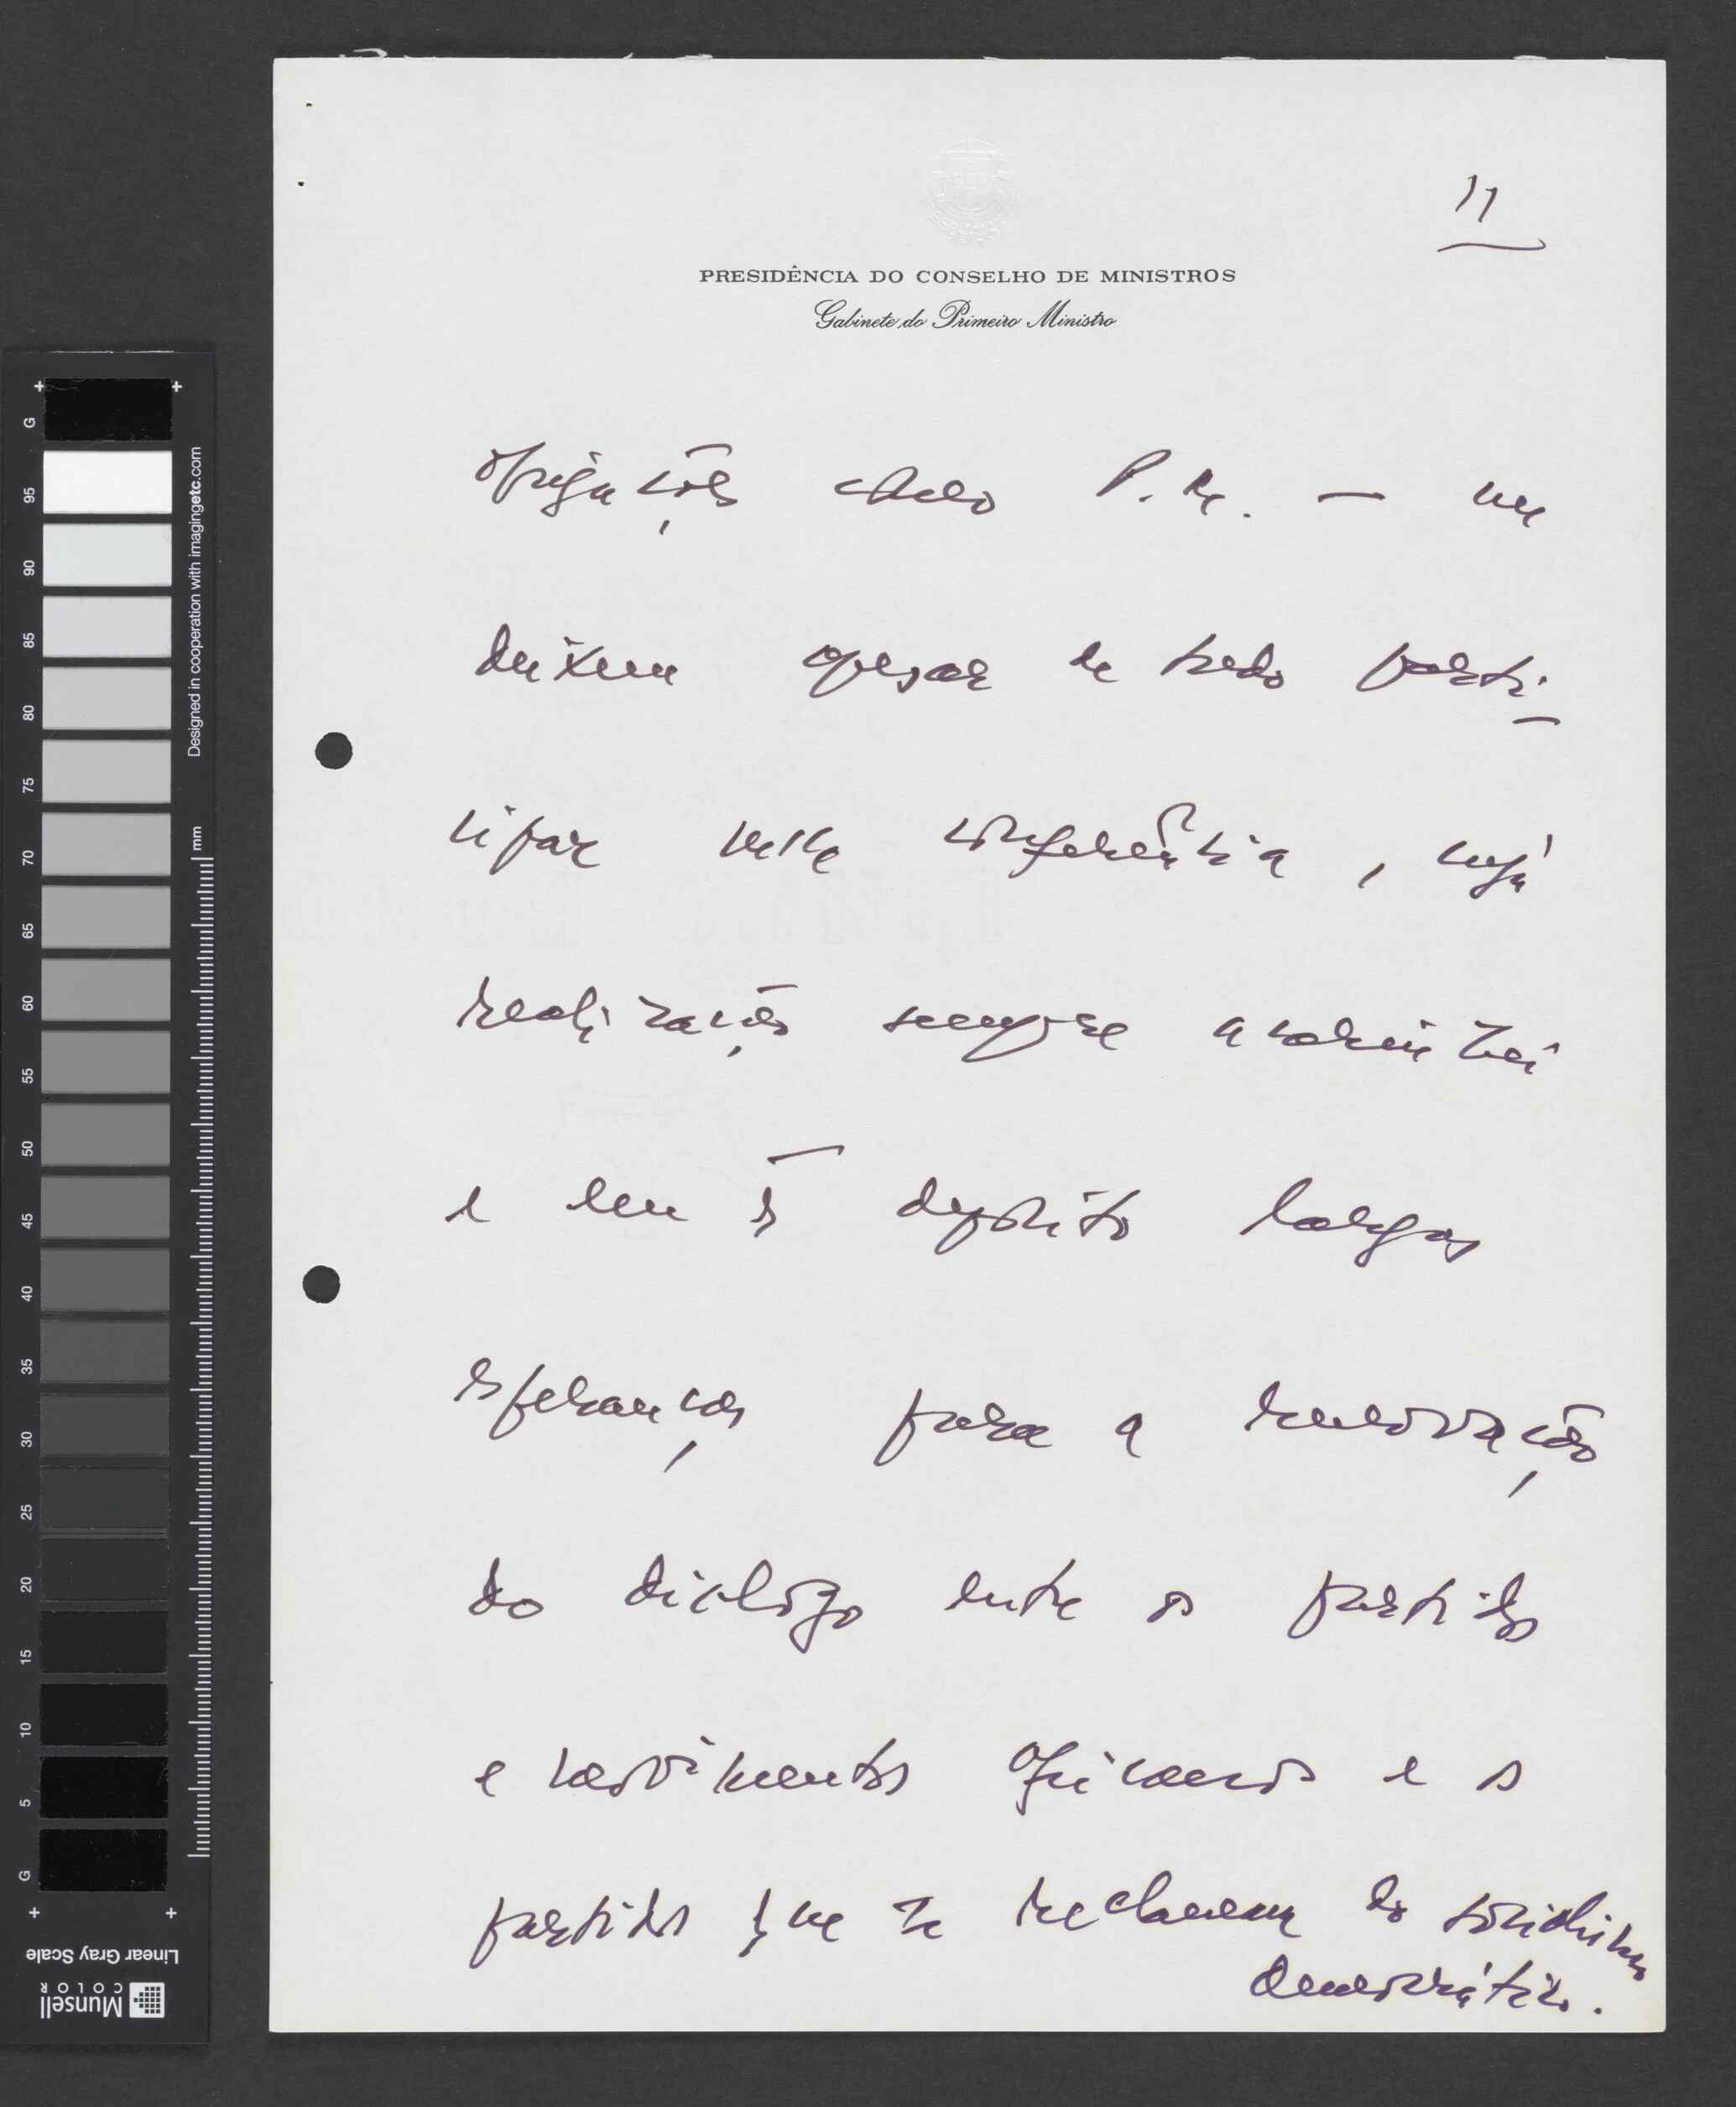 11
PRESIDÊNCIA DO CONSELHO DE MINISTROS
Gabinete do Primeiro Ministro
obrigações como P.M. — me
deixem apesar de tudo parti-
cipar nesta conferência, cuja
realização sempre acarinhei
e em q̄ deposito largas
esperanças para a renovação
do diálogo entre os partidos
e movimentos africanos e os
partidos que se reclamam do socialismo
democrático.
G
95
90
85
80
75
70
65
60
55
50
45
40
35
30
25
20
15
10
5
G
Designed in cooperation with imagingetc.com
mm
Linear Gray Scale
Munsell
COLOR